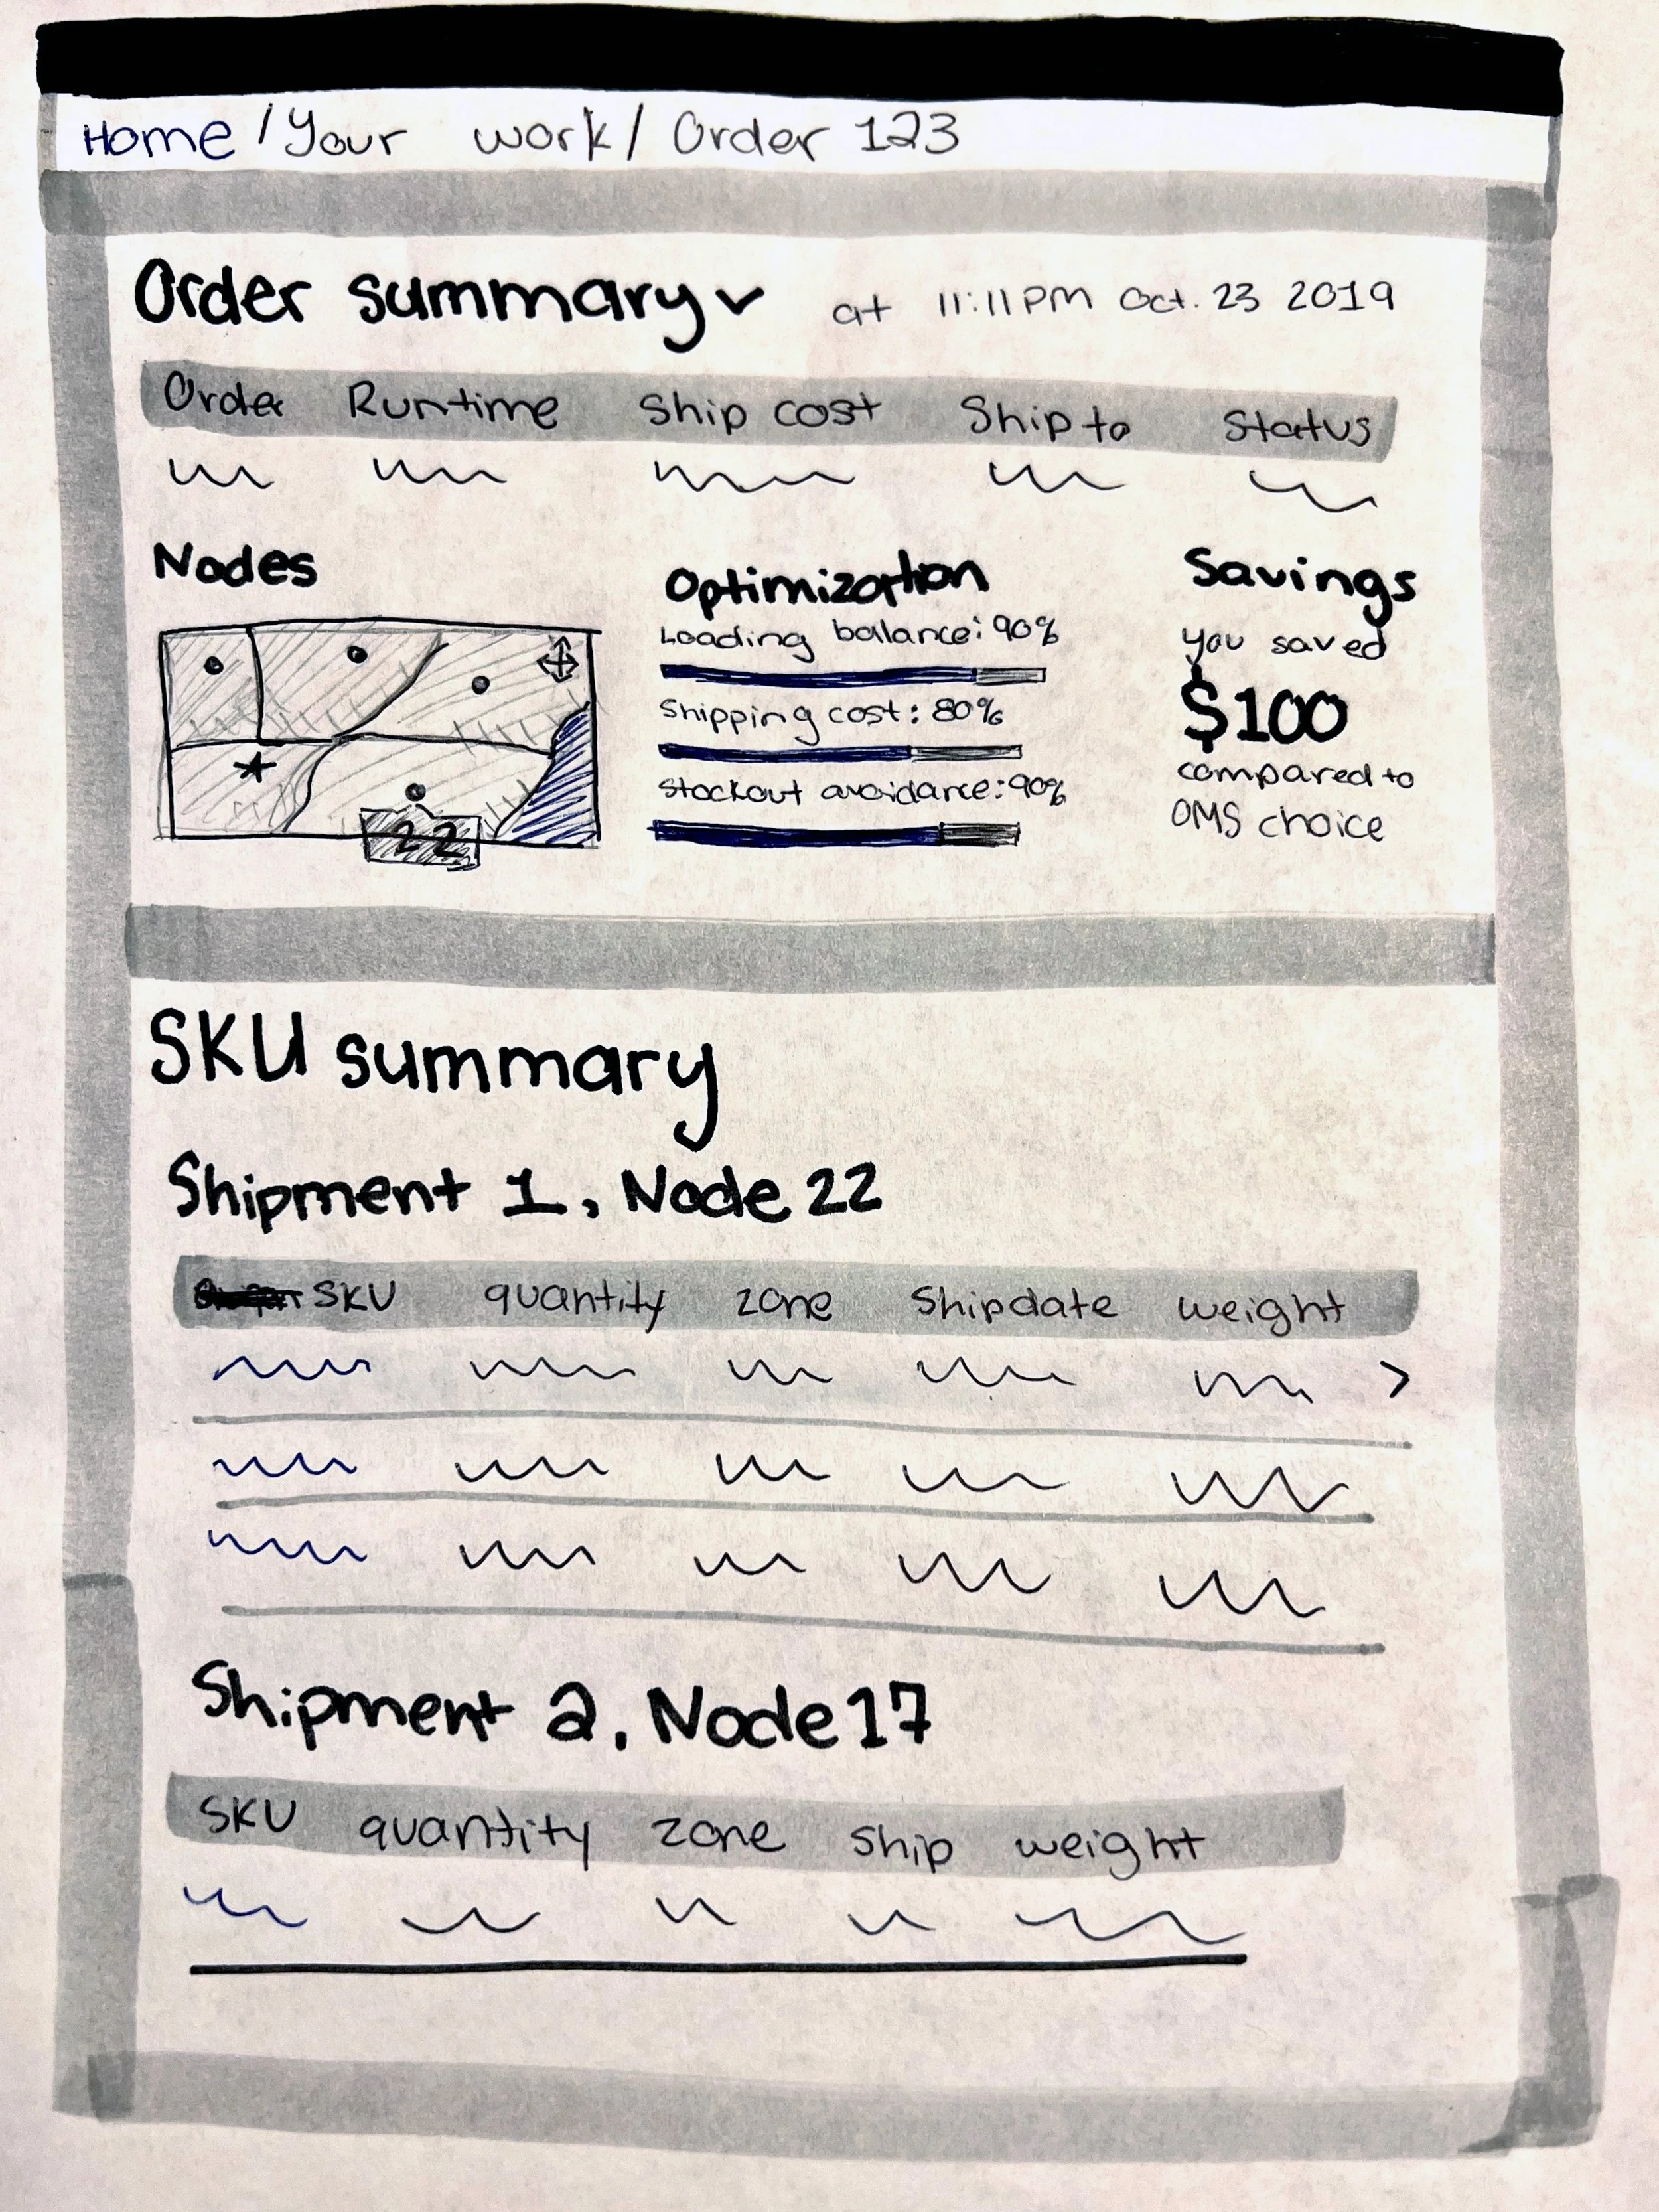 Home / Your work / Order 123
Order summary at 11:11PM Oct. 23 2019
Order Runtime Ship cost Ship to Status
Nodes
22
Optimization
Loading balance: 90%
Shipping cost: 80%
Stockout avoidance: 90%
Savings
you saved
$100
compared to
OMS choice
SKU summary
Shipment 1, Node 22
SKU quantity zone Shipdate weight
Shipment 2, Node 17
SKU quantity zone Ship weight